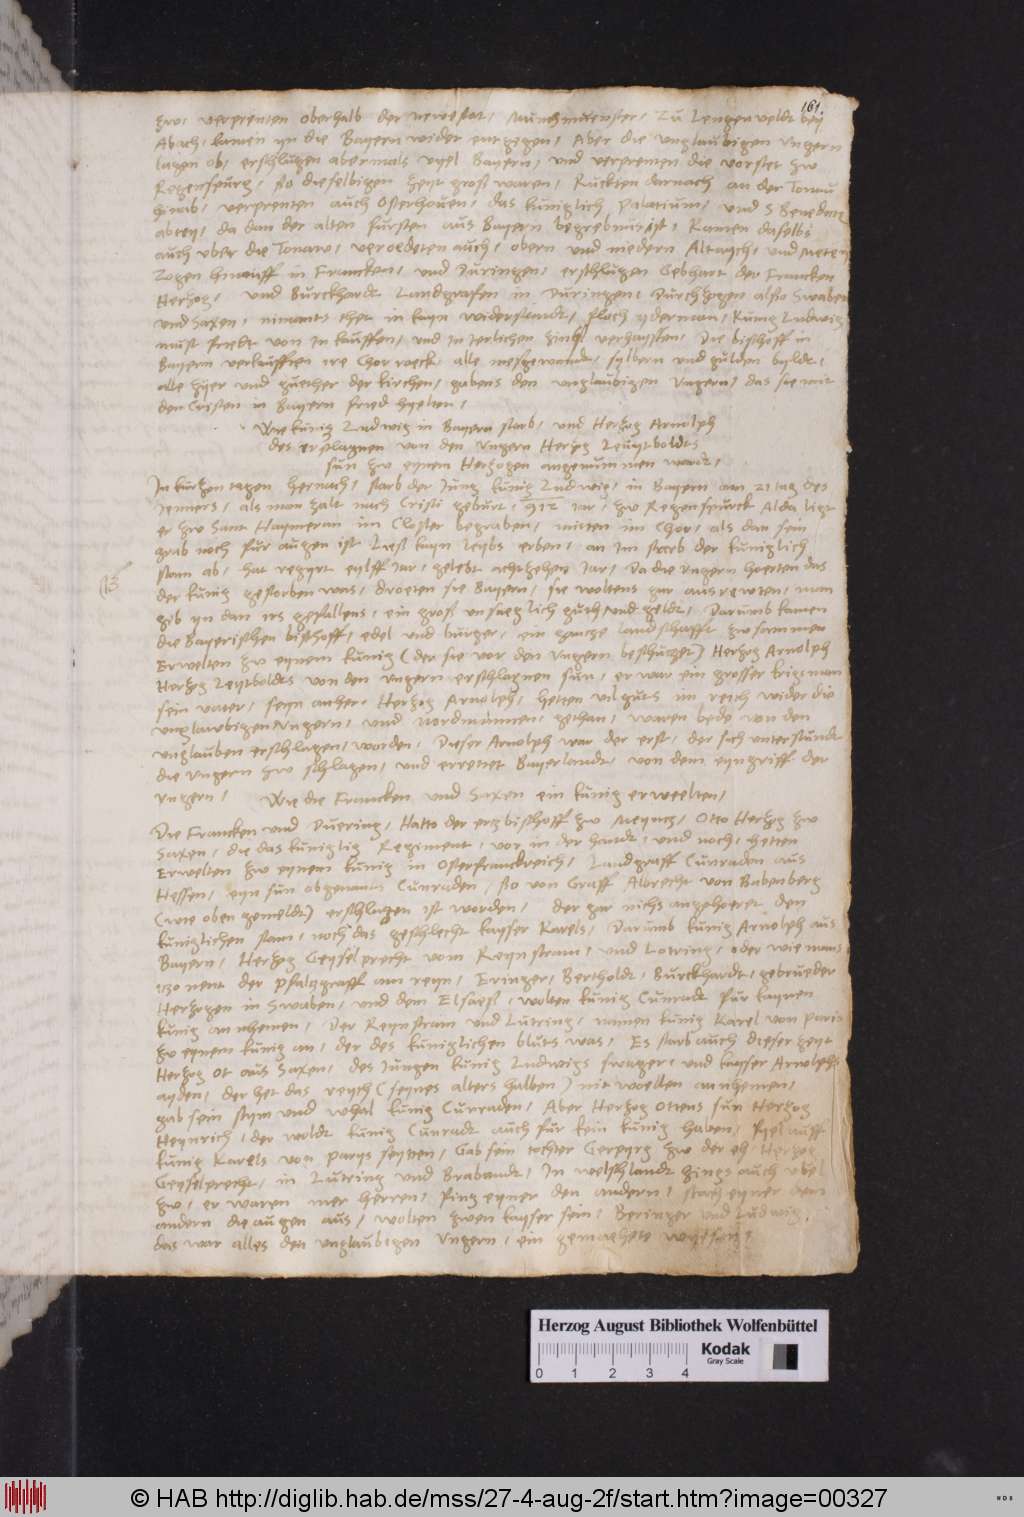 161.
hzw verprenten oberhalb der newestat / Munchmunster / Zu Lengenveldt bey
Abach / kamen yn die Bayern wider entgegen / Aber die unglaubigen Ungern
lagen ob / erschlugen abermals vyel Bayern / und verprenen die vorstet zw
Regenspurg / so dieselbigen heyt groß waren / Ruckten darnach an der Tonau
hinab / verprenten auch Osterhouen / das kuniglich Palatium / und S Benedict
abtey / da dan der alten fursten aus Bayern begrebnus ist / kamen daselbs
auch uber die Tonaw / veroedeten auch / obern und niedern Altaych / und Meten
Zogen hinauff in Francken / und Duringen / erschlugen Gebhart der Francken
Herzog / und Burckhardt Landgrafen in Duringen / Durchzogen also Swaben
und Saxen / nimants thet in kayn widerstandt / floch yderman / Kunig Ludwig
must friedt von in kauffen / und in Jerlichen zins verhayssen / Die bischoff in
Bayern verkaufften ire Chor roeck / alle mesgewandt / sylbern und gulden byldt /
alle zyer und guether der kirchen / gabens den unglaubigen Ungern / das sie mit
den Cristen in Bayern fried hyelten /
Wie kunig Ludwig in Bayern starb / und Herzog Arnolph
des erslagnen von den Ungern Herzog Leuytboldts
sun zw eynem Herzogen angenummen wardt /
In kurtzen tagen hernach / starb der Jung kunig Ludwig / in Bayern am 21 tag des
Jenners / als man zalt nach Cristi geburt / 912 Jar / zw Regenspurck Alda ligt
er zw Sant Haymeran im Closter begraben / mitten im Chor / als dan sein
grab noch fur augen ist Ließ kayn leybs erben / an im starb der kuniglich
stam ab / hat regyrt eylff Jar / gelebt achtzehen Jar / Da die Ungern hoerten das
der kunig gestorben was / droeten sie Bayern / sie woltens gar ausrewten / man
gib yn dan irs gefallens / ein groß unsaeglich guth und geldt / Darumb kamen
die Bayerischen bischoff / edel und burger / ein gantze landschafft zwsammen
Erwelten zw eynem kunig (der sie vor den Ungern beschutzet) Herzog Arnolph
Herzog Leytboldts von den Ungern erschlagnen sun / er war ein grosser krigsman
sein vater / seyn anher / Herzog Arnolph / hetten vil guts im reich wider die
unglawbigen Ungern / und Nordmannen / gethan / waren bede von den
unglauben erschlagen / worden / Dieser Arnolph war der erst / der sich unterstundt
die Ungern zw schlagen / und errettet Bayerlandt / von dem eyngriff der
Ungern / Wie die Francken und Saxen ein kunig erweelten /
Die Francken und Duering / Hatto der ertzbischoff zw Meyntz / Otto Herzog zw
Saxen / die das kuniglig Regiment / vor in der handt / und noch / hetten
Erwelten zw eynem kunig in Osterfranckreich / Landgraff Cunraden aus
Hessen / eyn sun obgenants Cunraden / so von Graff Albrecht von Babenberg
(wie oben gemeldt) erschlagen ist worden / der gar nichs angehoeret den
kuniglichen stam / noch das geschlecht kayser Karels / Darumb kunig Arnolph aus
Bayern / Herzog Geyselprecht vom Reynstram / und Lotring / oder wie mans
yzo nent der Pfaltzgraff am reyn / Eringer / Bertholdt / Burckhardt / gebrueder
Herzogen in Swaben / und dem Elsaess / wolten kunig Cunradt fur kaynen
kunig annhemen / Der Reynstram und Lutring / namen kunig Karel von Paris
zw eynem kunig an / der des kuniglichen bluts was / Es starb auch dieser zeyt
Herzog Ot aus Saxen / des Jungen kunig Ludwigs swager / und kayser Arnolphs
ayden / der het das reych (seynes alters halben) nit woellen annhemen /
gab sein stym und whal kunig Curraden / Aber Herzog Ottens sun Herzog
Heynrich / der woldt kunig Cunradt auch fur kein kunig haben / fyel auff
kunig Karels von Parys seytten / Gab sein tochter Gerpyrg zw der eh Herzog
Geyselprecht / in Lutring und Brabandt / In welschlandt gings auch ubel
zw / er waren mer herren / fing eyner den andern / stach eyner dem
andern die augen aus / wolten zwen kayser sein / Beringer und Ludwig /
das war alles den unglaubigen Ungern / ein gemaehete wysen /
Herzog August Bibliothek Wolfenbüttel
Kodak
Gray Scale
0 1 2 3 4
© HAB http://diglib.hab.de/mss/27-4-aug-2f/start.htm?image=00327